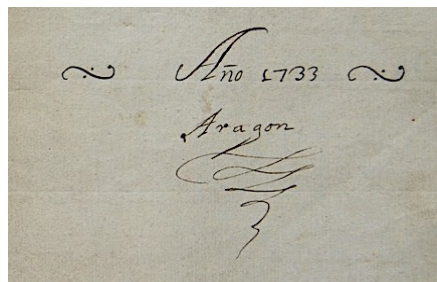 Año 1733
Aragon